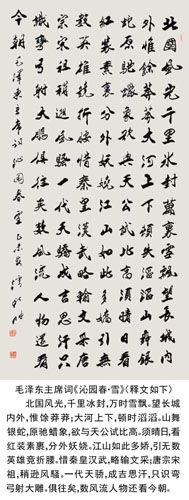 北國風光千里冰封萬里雪飄望長城内
外惟餘莽莽大河上下頓失滔滔山舞銀
蛇原馳蠟象欲與天公試比高須晴日看
紅裝素裹分外妖嬈江山如此多嬌引無
數英雄競折腰惜秦皇漢武略輸文采唐
宗宋祖稍遜風騷一代天驕成吉思汗只
識彎弓射大鵰俱往矣數風流人物還看
今朝 毛澤東主席詞沁園春雪
毛泽东主席词《沁园春·雪》(释文如下)
北国风光,千里冰封,万时雪飘,望长城内
外,惟馀莽莽;大河上下,顿时滔滔,山舞
银蛇,原驰蜡象,欲与天公试比高,须晴日,看
红装素裹,分外妖娆,江山如此多娇,引无数
英雄竞折腰;惜秦皇汉武,略输文采;唐宗宋
祖,稍逊风骚。一代天骄,成吉思汗,只识弯
弓射大雕,俱往矣,数风流人物还看今朝。